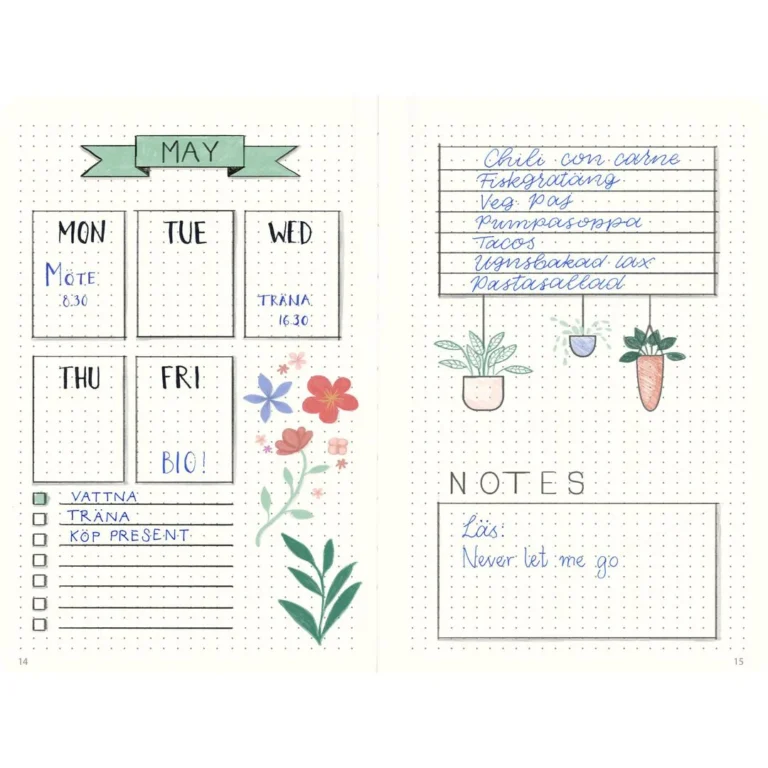 MAY
MON
MÖTE
8.30
TUE
WED
TRÄNA
16.30
THU
FRI
BIO!
VATTNA
TRÄNA
KÖP PRESENT
14
Chili con carne
Fiskgratäng
Veg. Paj
Pumpasoppa
Tacos
Ugnsbakad lax
Pastasallad
NOTES
Läs:
Never let me go
15